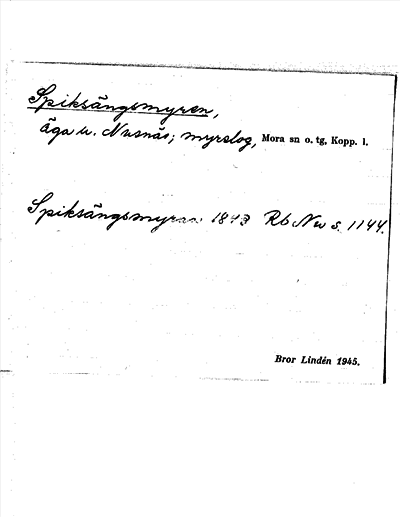 Spiksängsmyren,
äga u. Nusnäs; myrslog, Mora sn o. tg, Kopp. l.
Spiksängsmyran 1843 Rb Nu s. 1144.
Bror Lindén 1945.